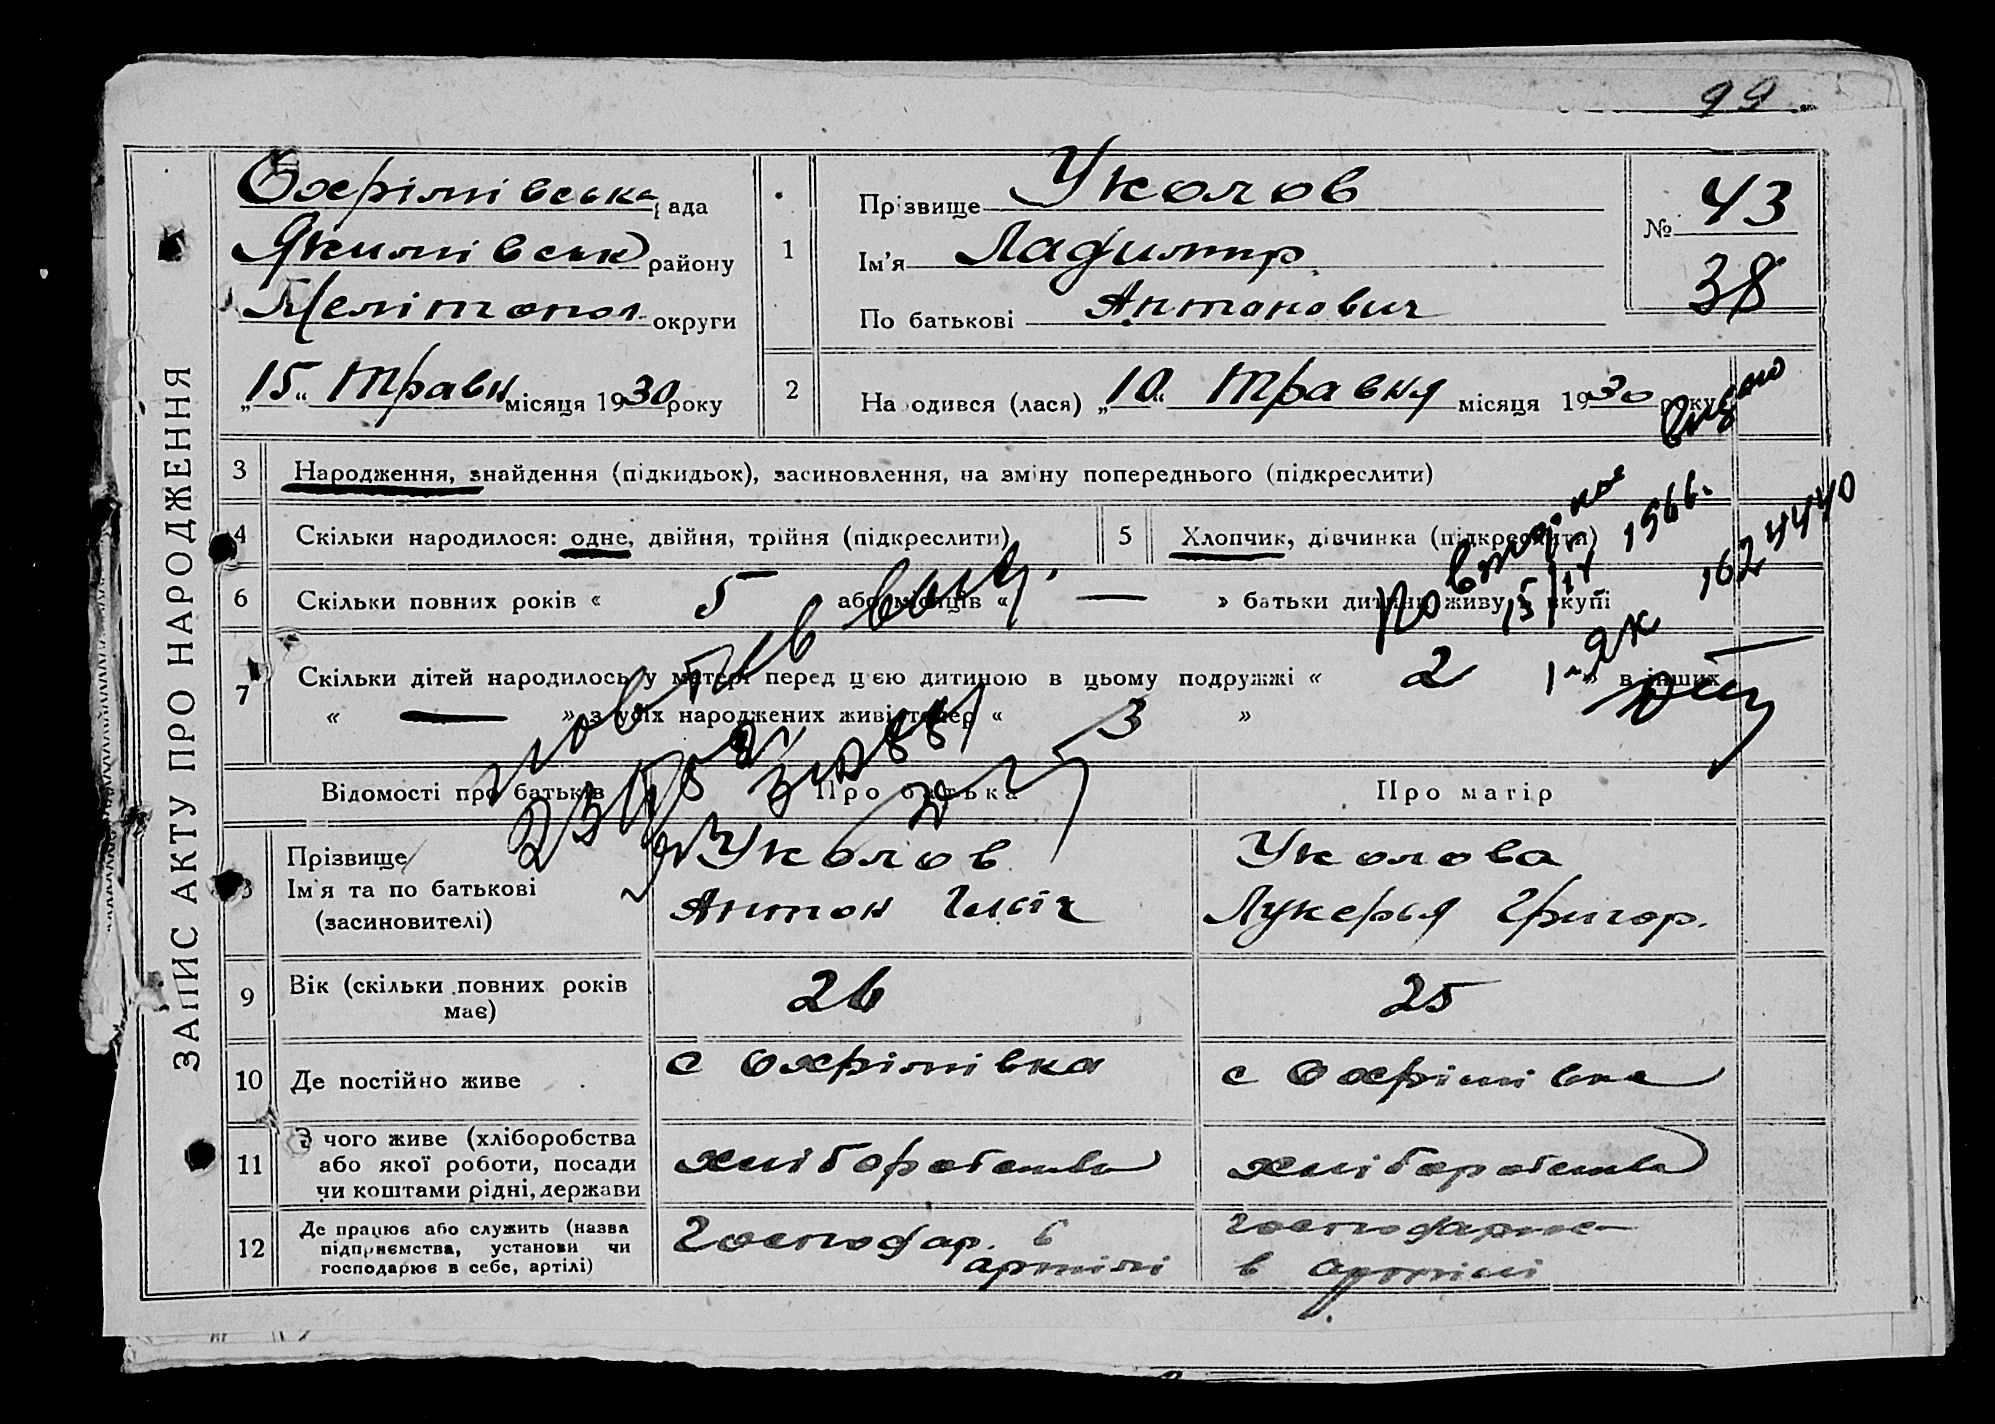 99
ЗАПИС АКТУ ПРО НАРОДЖЕННЯ
Охрімівська рада
Якимівськ району
Мелітопол. округи
„15“ Травн місяця 1930 року
1
Прізвище Уколов
Ім’я Ладимир
По батькові Антонович
№ 43
38
2 Народився (лася) „10“ Травня місяця 1930 року
3 Народження, знайдення (підкидьок), засиновлення, на зміну попереднього (підкреслити)
4 Скільки народилося: одне, двійня, трійня (підкреслити)
5 Хлопчик, дівчинка (підкреслити)
6 Скільки повних років « 5 або місяців « — » батьки дитини живуть вкупі
7 Скільки дітей народилось у матері перед цією дитиною в цьому подружжі « 2 » в інших
« — » з усіх народжених живі тепер « 3 »
Видано
повторное
15/IV 1966.
1-ЯК 1624440
повтор выд.
Відомості про батьків
Про батька
Про матір
8 Прізвище
Ім’я та по батькові
(засиновителі)
Уколов
Антон Ільіч
Уколова
Лукерья Григор.
9 Вік (скільки повних років
має)
26
25
10 Де постійно живе
с Охрімівка
с Охрімівка
11 З чого живе (хліборобства
або якої роботи, посади
чи коштами рідні, держави
хліборобства
хліборобства
12 Де працює або служить (назва
підприємства, установи чи
господарює в себе, артілі)
Господар. в
артілі
Господарює
в артілі